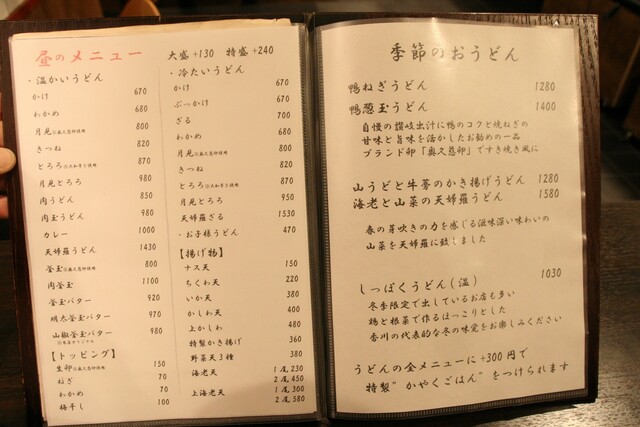 昼のメニュー 大盛+130 特盛+240
・温かいうどん
かけ 670
わかめ 680
月見 ※奥久慈卵使用 800
きつね 820
とろろ ※大和芋使用 870
月見とろろ 980
肉うどん 850
肉玉うどん 980
カレー 1000
天婦羅うどん 1430
釜玉 ※奥久慈卵使用 800
肉釜玉 1100
釜玉バター 920
明太釜玉バター 970
山椒釜玉バター 980
【トッピング】
生卵 ※奥久慈卵使用 150
ねぎ 70
わかめ 70
梅干し 100
・冷たいうどん
かけ 670
ぶっかけ 670
ざる 700
わかめ 680
月見 ※奥久慈卵使用 800
きつね 820
とろろ ※大和芋使用 870
月見とろろ 950
天婦羅ざる 1530
・お子様うどん 470
【揚げ物】
ナス天 150
ちくわ天 220
いか天 380
かしわ天 400
上かしわ 480
特製かき揚げ 360
野菜天3種 380
海老天 1尾,230
2尾,450
上海老天 1尾,300
2尾,580
季節のおうどん
鴨ねぎうどん 1280
鴨葱玉うどん 1400
自慢の讃岐出汁に鴨のコクと焼ねぎの
甘味と旨味を活かしたお勧めの一品
ブランド卵「奥久慈卵」ですき焼き風に
山うどと牛蒡のかき揚げうどん 1280
海老と山菜の天婦羅うどん 1580
春の芽吹きの力を感じる滋味深い味わいの
山菜を天婦羅に致しました
しっぽくうどん(温) 1030
冬季限定で出しているお店も多い
鶏と根菜で作るほっこりとした
香川の代表的な冬の味覚をお楽しみください
うどんの全メニューに+300円で
特製"かやくごはん"をつけられます